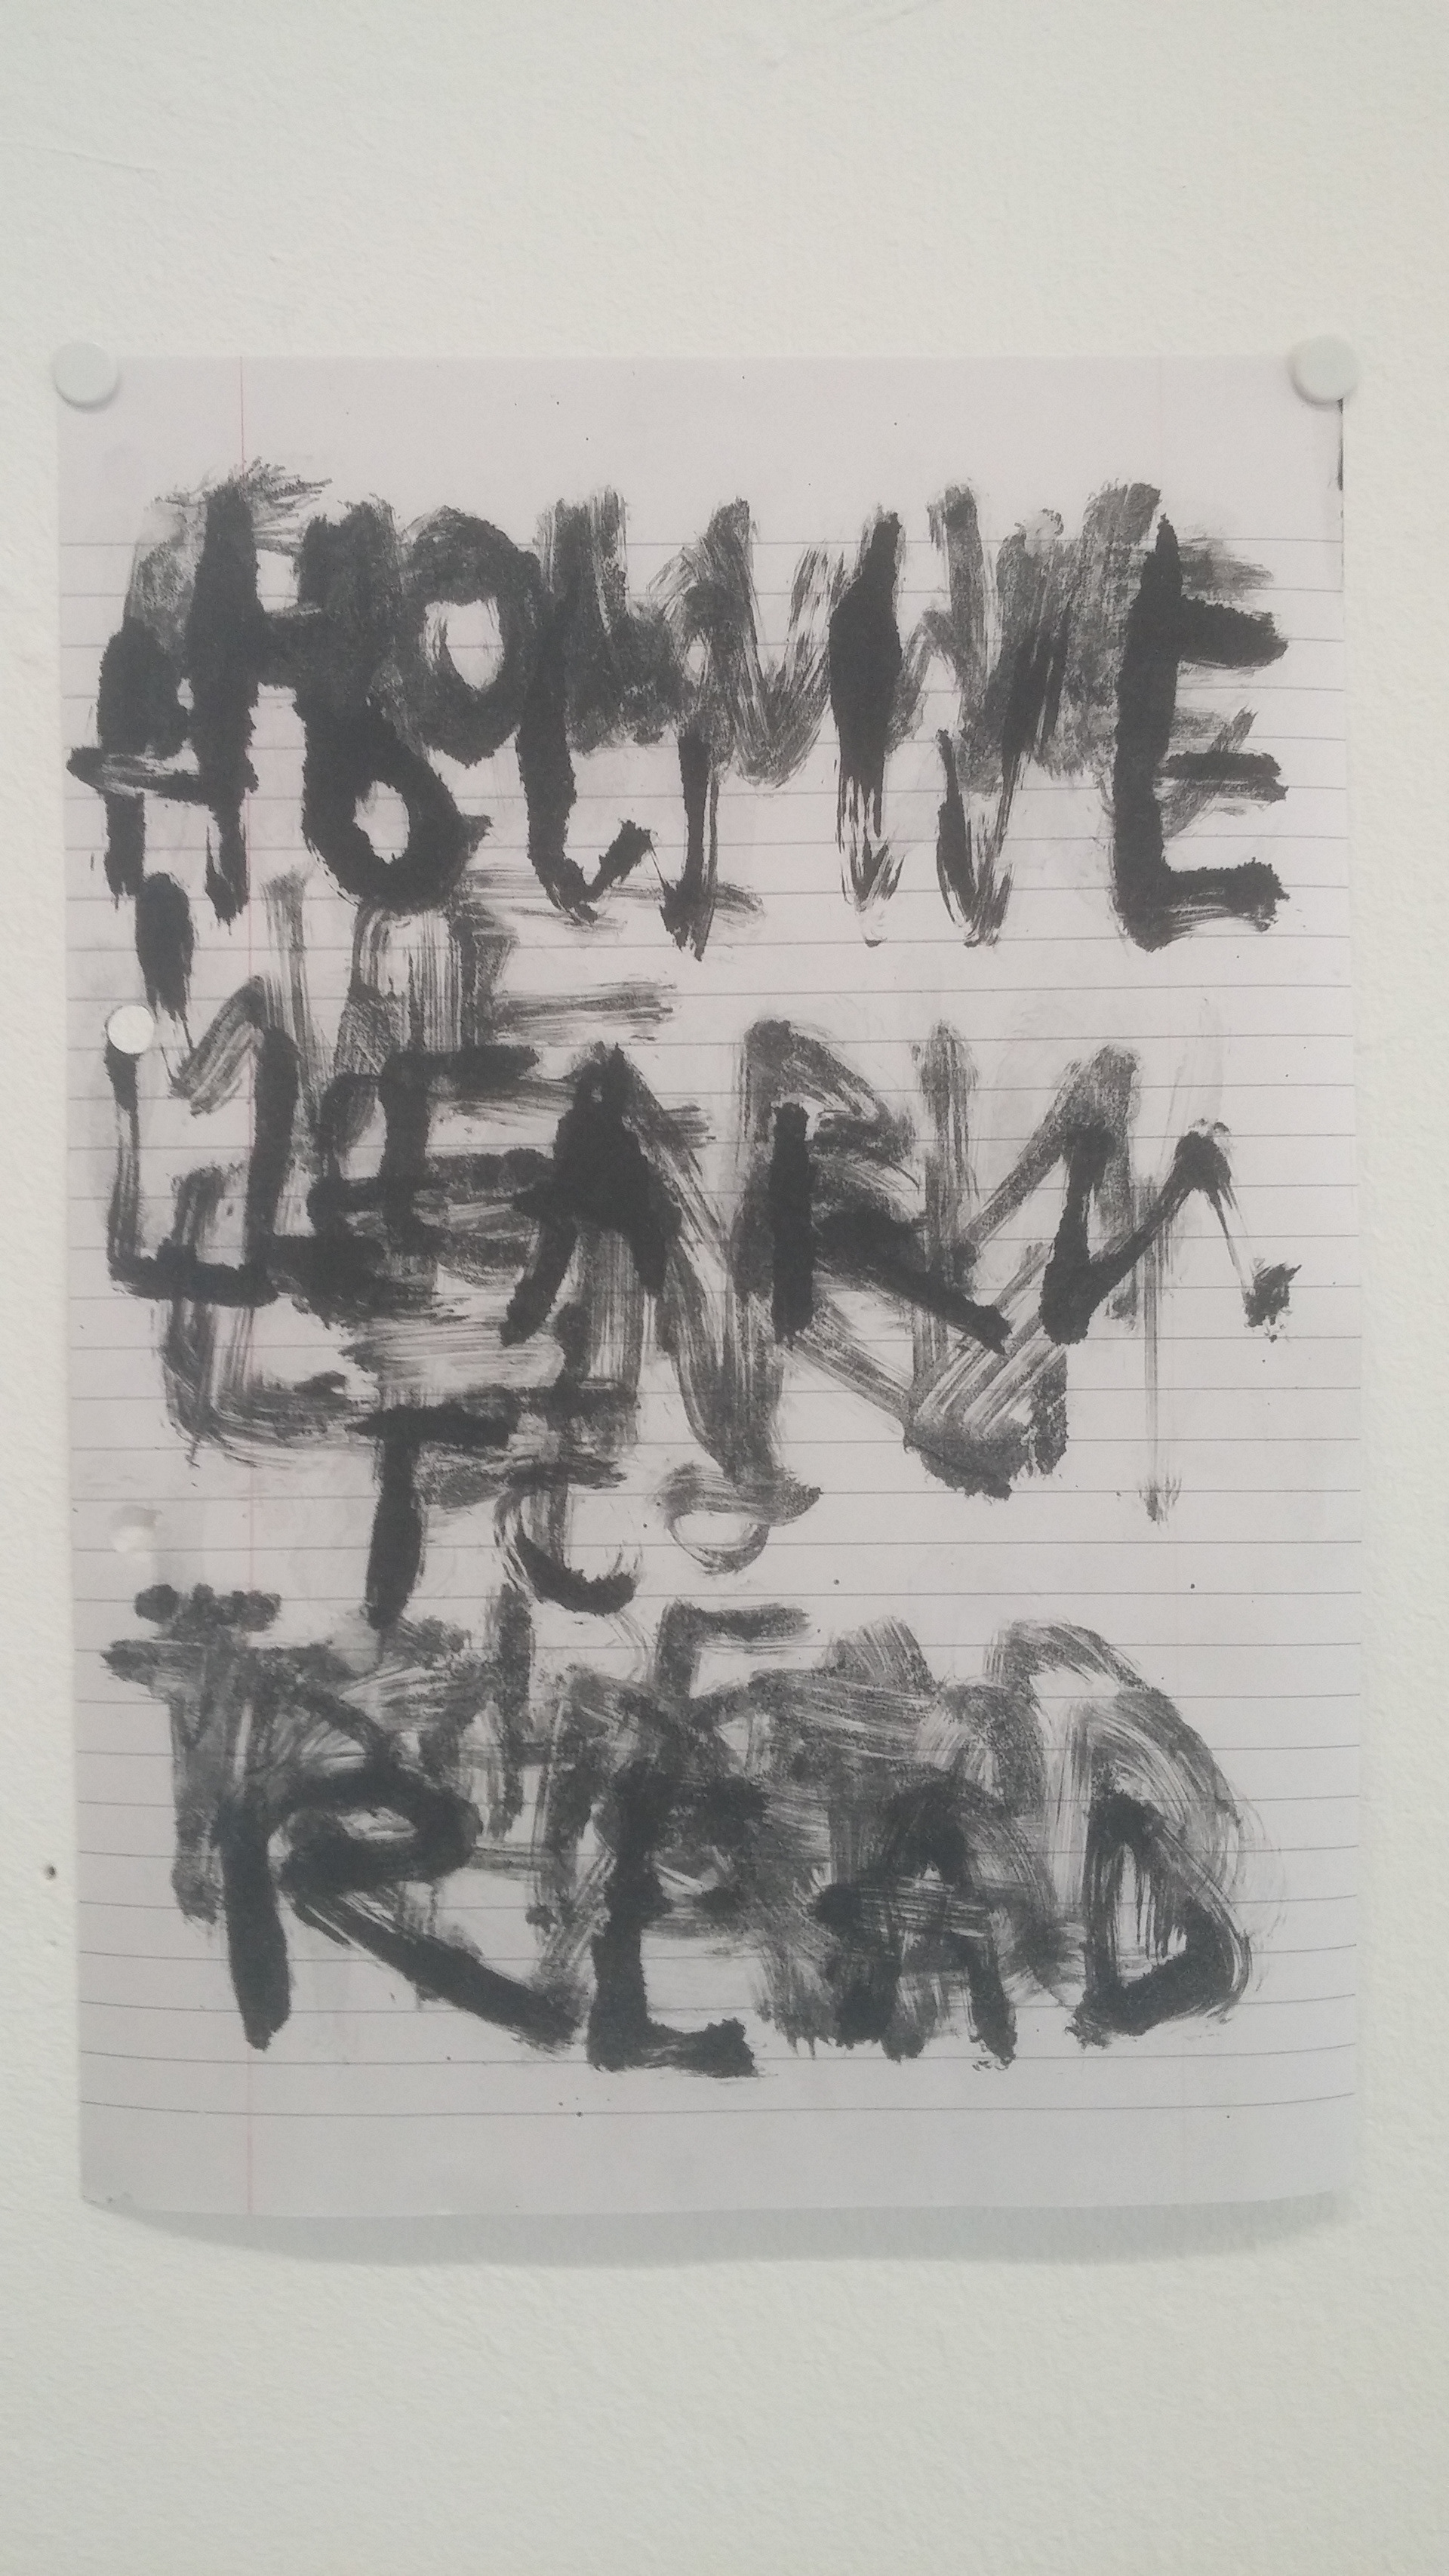 HOW WE
LEARN
TO
READ